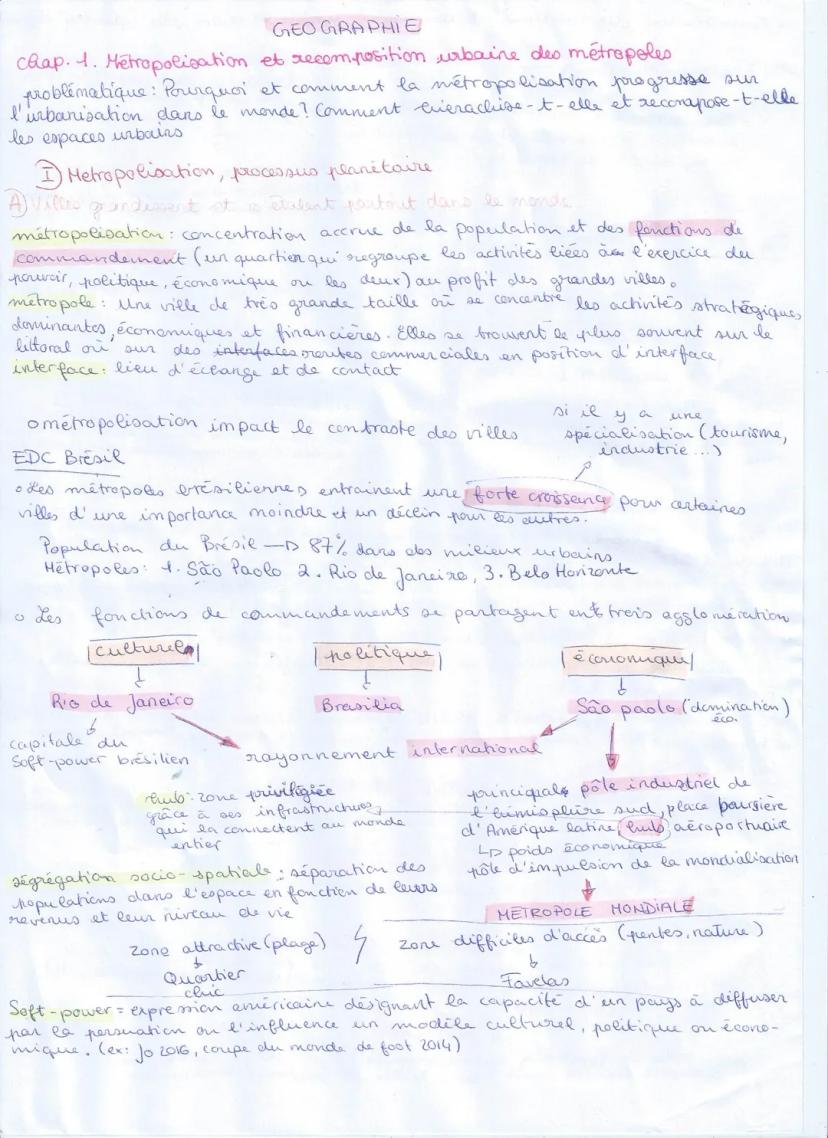 GEOGRAPHIE
Chap. 1. Métropolisation et recomposition urbaine des métropoles
problématique : Pourquoi et comment la métropolisation progresse sur
l'urbanisation dans le monde ? Comment hiérachise-t-elle et recompose-t-elle
les espaces urbains
I) Metropolisation, processus planétaire
A) Villes grandissent et s'étalent partout dans le monde
métropolisation : concentration accrue de la population et des fonctions de
commandement (un quartier qui regroupe les activités liées à l'exercice du
pouvoir, politique, économique ou les deux) au profit des grandes villes.
métropole : Une ville de très grande taille où se concentre les activités stratégiques,
dominantes, économiques et financières. Elles se trouvent le plus souvent sur le
littoral où sur des interfaces routes commerciales en position d'interface
interface : lieu d'échange et de contact
o métropolisation impact le contraste des villes
si il y a une
spécialisation (tourisme,
industrie...)
EDC Brésil
o Les métropoles brésiliennes entrainent une forte croissance pour certaines
villes d'une importance moindre et un déclin pour les autres.
Population du Brésil → 87% dans des milieux urbains
Métropoles : 1. São Paolo 2. Rio de Janeiro, 3. Belo Horizonte
o Les fonctions de commandements se partagent en trois agglomération
culturel
politique
économique
Rio de Janeiro
Brasilia
São paolo (domination)
éco.
capitale du
Soft-power brésilien
rayonnement international
hub : zone privilégiée
grâce à ses infrastructures
qui la connectent au monde
entier
principal pôle industriel de
l'hémisphère sud, place boursière
d'Amérique latine, hub aéroportuaire
↳ poids économique
pôle d'impulsion de la mondialisation
METROPOLE MONDIALE
ségrégation socio-spatiale : séparation des
populations dans l'espace en fonction de leurs
revenus et leur niveau de vie
zone attractive (plage)
zone difficiles d'accès (pentes, nature)
Quartier
chic
Favelas
Soft-power = expression américaine désignant la capacité d'un pays à diffuser
par la persuation ou l'influence un modèle culturel, politique ou écono-
mique. (ex: Jo 2016, coupe du monde de foot 2014)